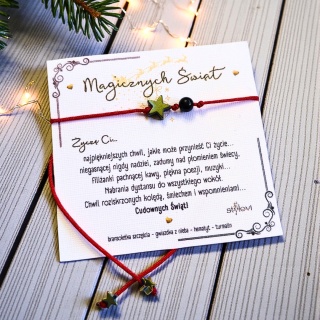 Magicznych Świąt
Życzę Ci...
najpiękniejszych chwil, jakie może przynieść Ci życie...
niegasnącej nigdy nadziei, zadumy nad płomieniem świecy,
filiżanki pachnącej kawy, piękna poezji, muzyki...
Nabrania dystansu do wszystkiego wokół.
Chwil roziskrzonych kolędą, śmiechem i wspomnieniami...
Cudownych Świąt!
bransoletka szczęścia - gwiazdka z nieba - hematyt - turmalin